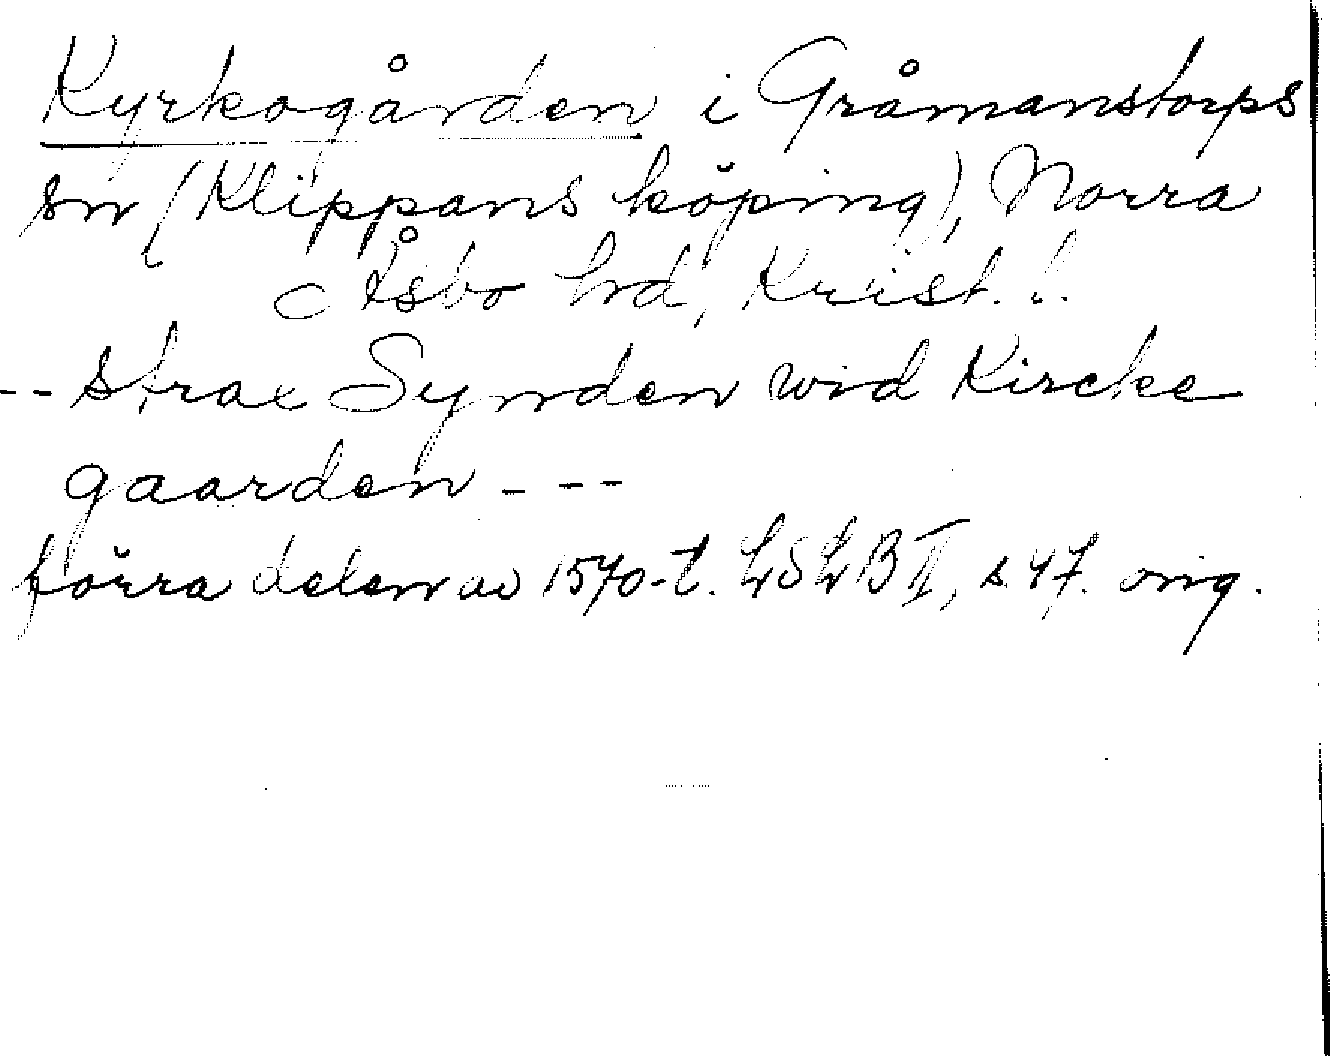 Kyrkogården i Gråmanstorps
sn (Klippans köping), Norra
Åsbo hd, Krist. l.
-- strax Synden wid Kircke
gaarden - - -
förra delen av 1570-t. LSLB II, s. 47. orig.